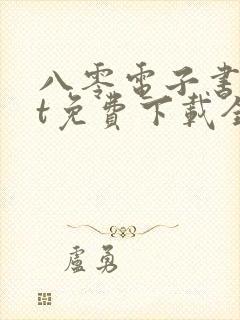 八零电子书
t免費下載全
盧勇